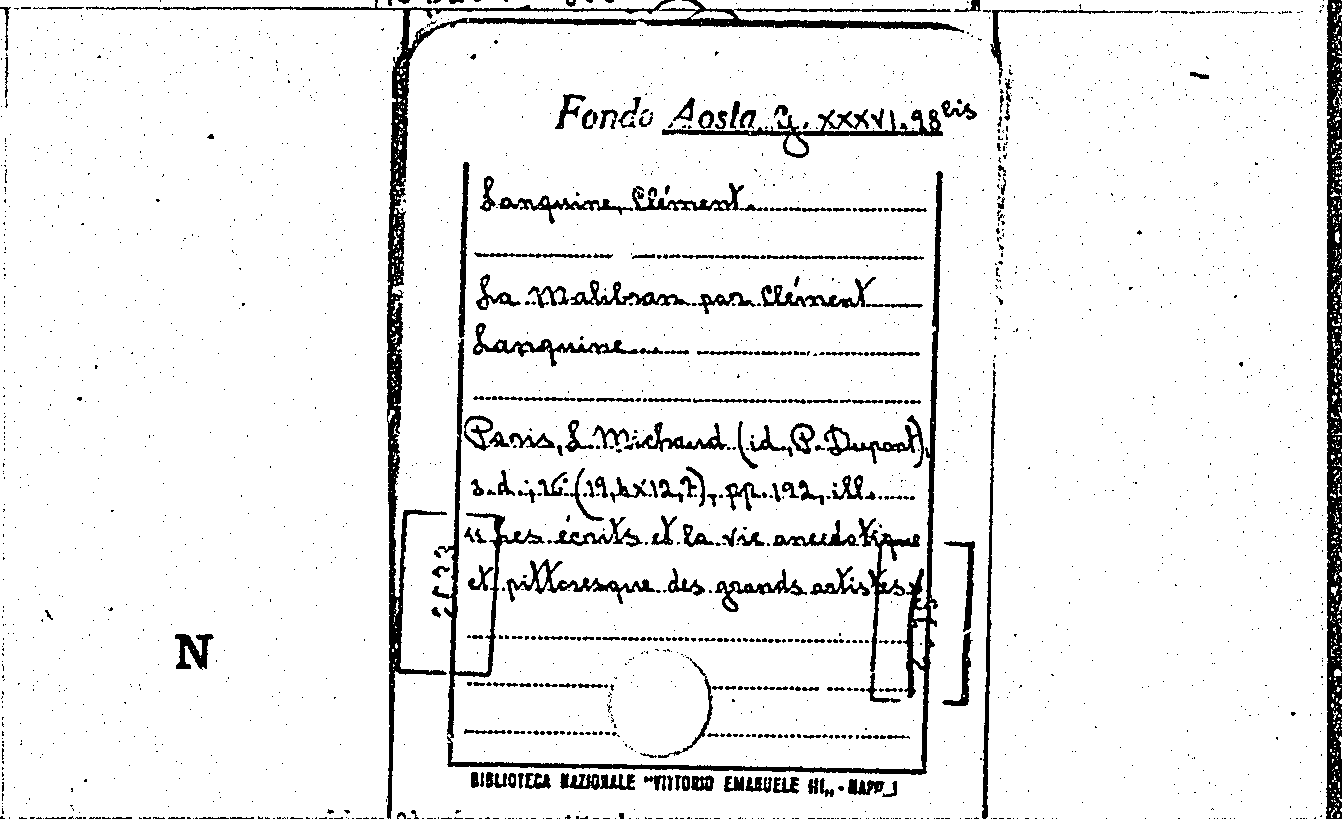 Fondo Aosta y. XXXVI. 98 bis
Lanquine, Clément.
La Malibran par Clément
Lanquine.
Paris, L. Michaud (id., P. Dupont),
s.d.; 16° (19, x12,7), pp. 192, ill.
"Les écrits et la vie anecdotique
et pittoresque des grands artistes"
N
BIBLIOTECA NAZIONALE "VITTORIO EMANUELE III„ - NAPOLI